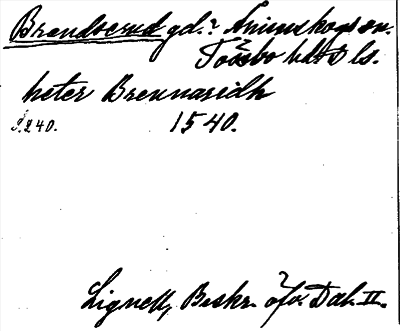 Brandserud gd.? Ånimskogs sn.
Tössbo hd D ls.
heter Brennaridh
S. 240. 1540.
Lignell, Beskr. öfv. Dal. II.